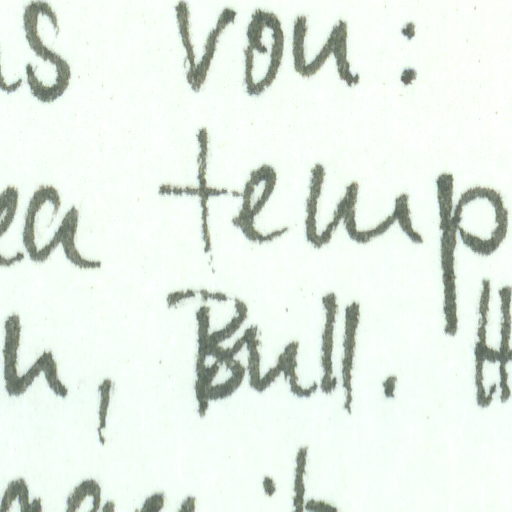 us von:
ea temp
n, Bull. H